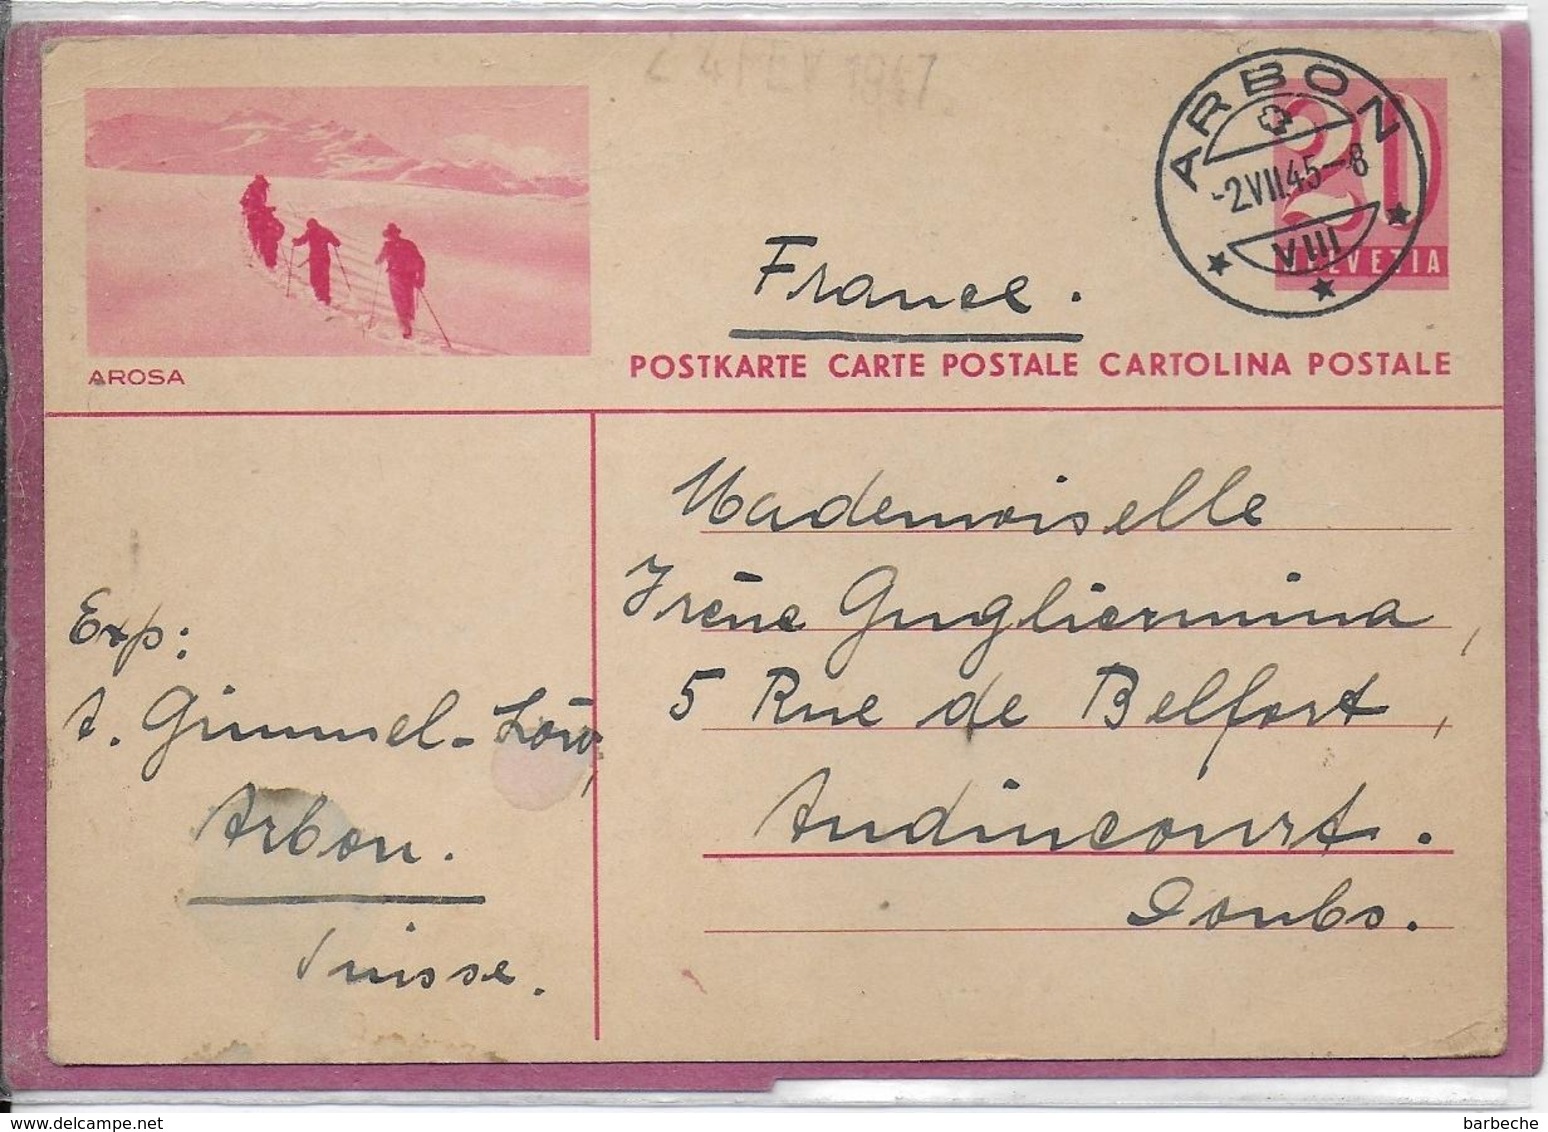 24 FEV 1947
ARBON
-2.VII.45-8
VIII
20
HELVETIA
France.
POSTKARTE CARTE POSTALE CARTOLINA POSTALE
AROSA
Mademoiselle
Irène Gugliermina,
5 Rue de Belfort,
Audincourt.
Doubs.
Exp:
A. Gimmel-Löw,
Arbon.
Suisse.
barbeche